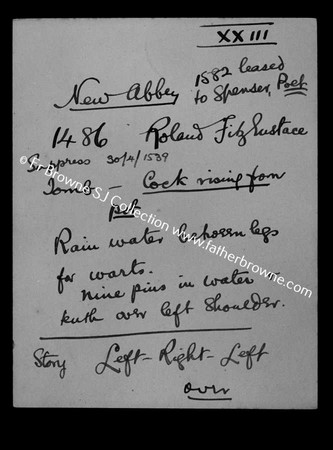 XXIII
New Abbey 1582 leased
to Spenser, Poet
1486 Roland FitzEustace
Suppress 30/4/1539
Tomb – Cock rising from
pot
Rain water between legs
for warts.
Nine pins in water
over left shoulder.
Story Left-Right-Left
over
© Fr Browne SJ Collection www.fatherbrowne.com